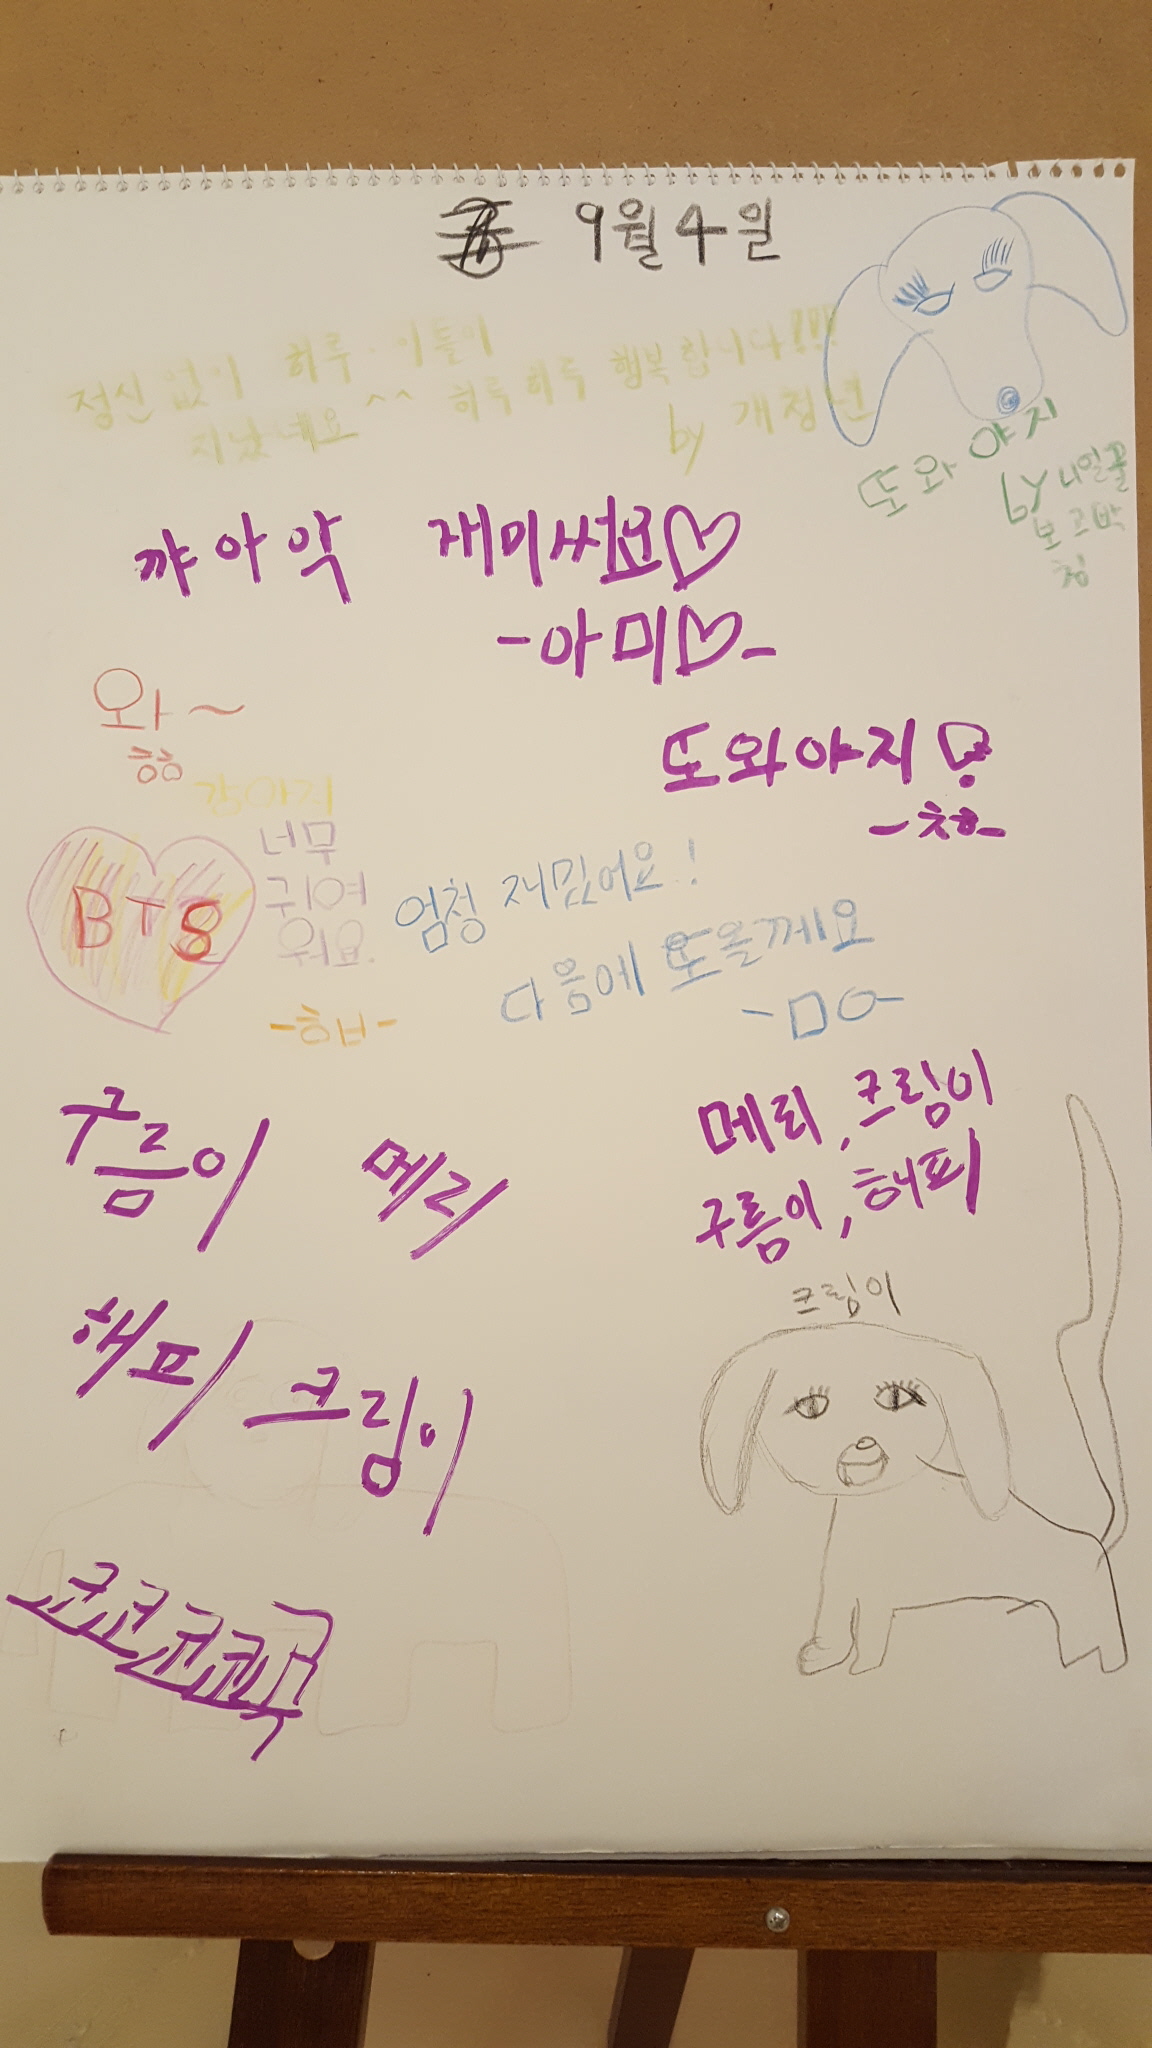 9월 4일
정신없이 하루·이틀이
지났네요 ^^ 하루하루 행복합니다!!!
by 개청년
또와야지
by 니얼굴
꺄아악 재미써요♡
-아미♡-
와~
흠흠
또와야지
강아지
너무
귀여
워요.
BTS
엄청 재밌어요!
다음에 또올께요
구름이 메리
메리, 크림이
구름이, 해피
해피 크림이
크림이